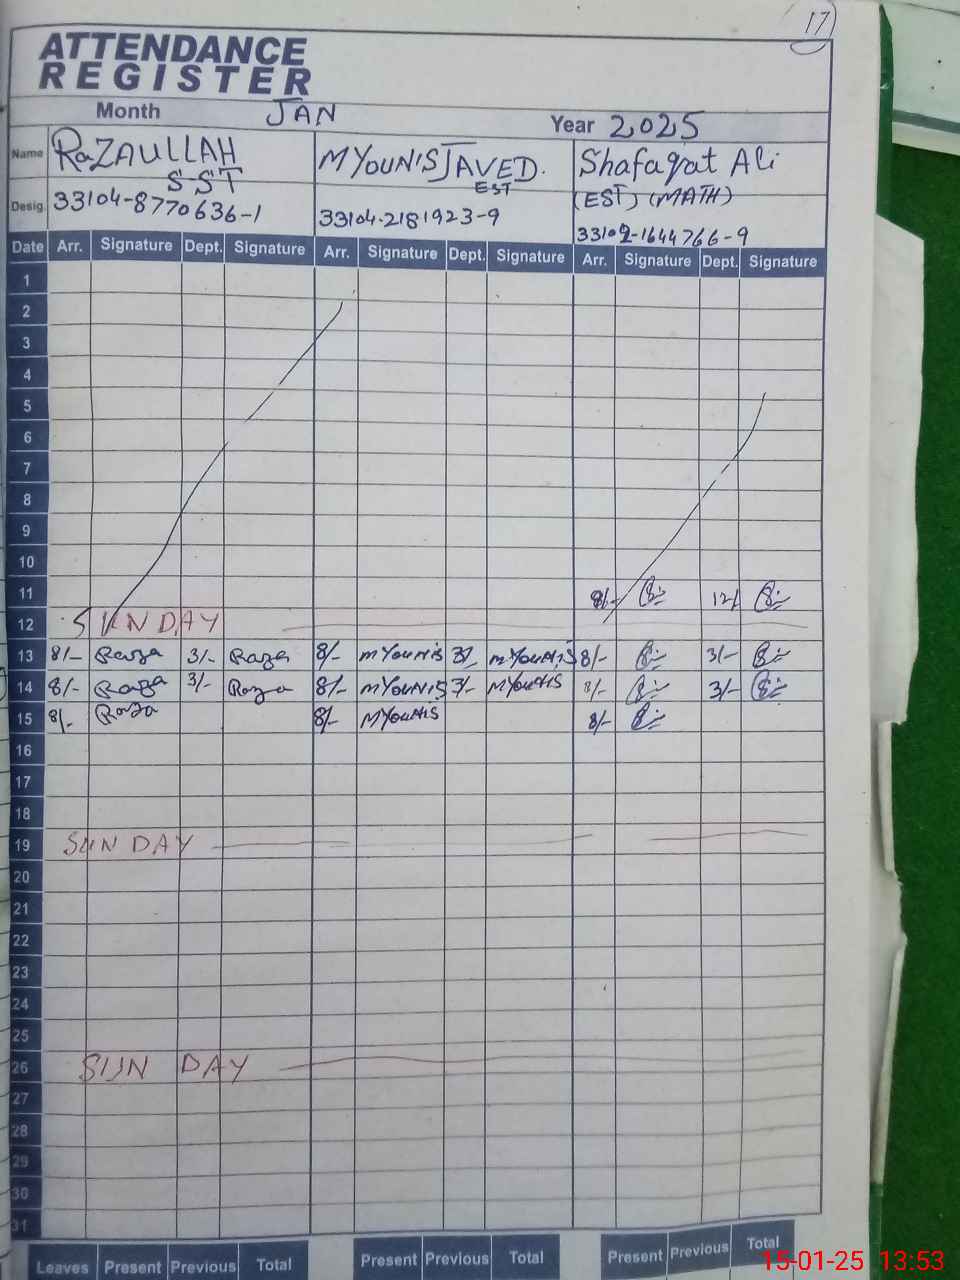 17
ATTENDANCE
REGISTER
Month JAN Year 2025
Name RaZAULLAH M YOUNIS JAVED. Shafaqat Ali
SST EST (EST) (MATH)
Desig. 33104-8770636-1 33104-2181923-9 33102-1644766-9
Date Arr. Signature Dept. Signature Arr. Signature Dept. Signature Arr. Signature Dept. Signature
1
2
3
4
5
6
7
8
9
10
11 8/- 12/
12 SUNDAY
13 8/- Raza 3/- Raza 8/- MYOUNIS 3/- MYOUNIS 8/- 3/-
14 8/- Raza 3/- Raza 8/- MYOUNIS 3/- MYOUNIS 8/- 3/-
15 8/- Raza 8/- MYOUNIS 8/-
16
17
18
19 SUNDAY
20
21
22
23
24
25
26 SUNDAY
27
28
29
30
31
Leaves Present Previous Total Present Previous Total Present Previous Total
15-01-25 13:53